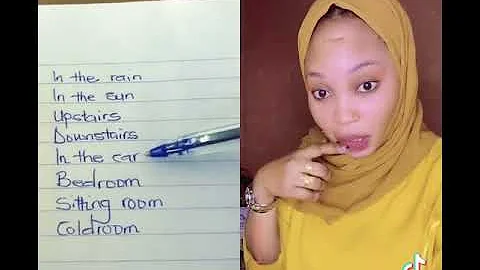 In the rain
In the sun
Upstairs
Downstairs
In the car
Bedroom
Sitting room
Coldroom